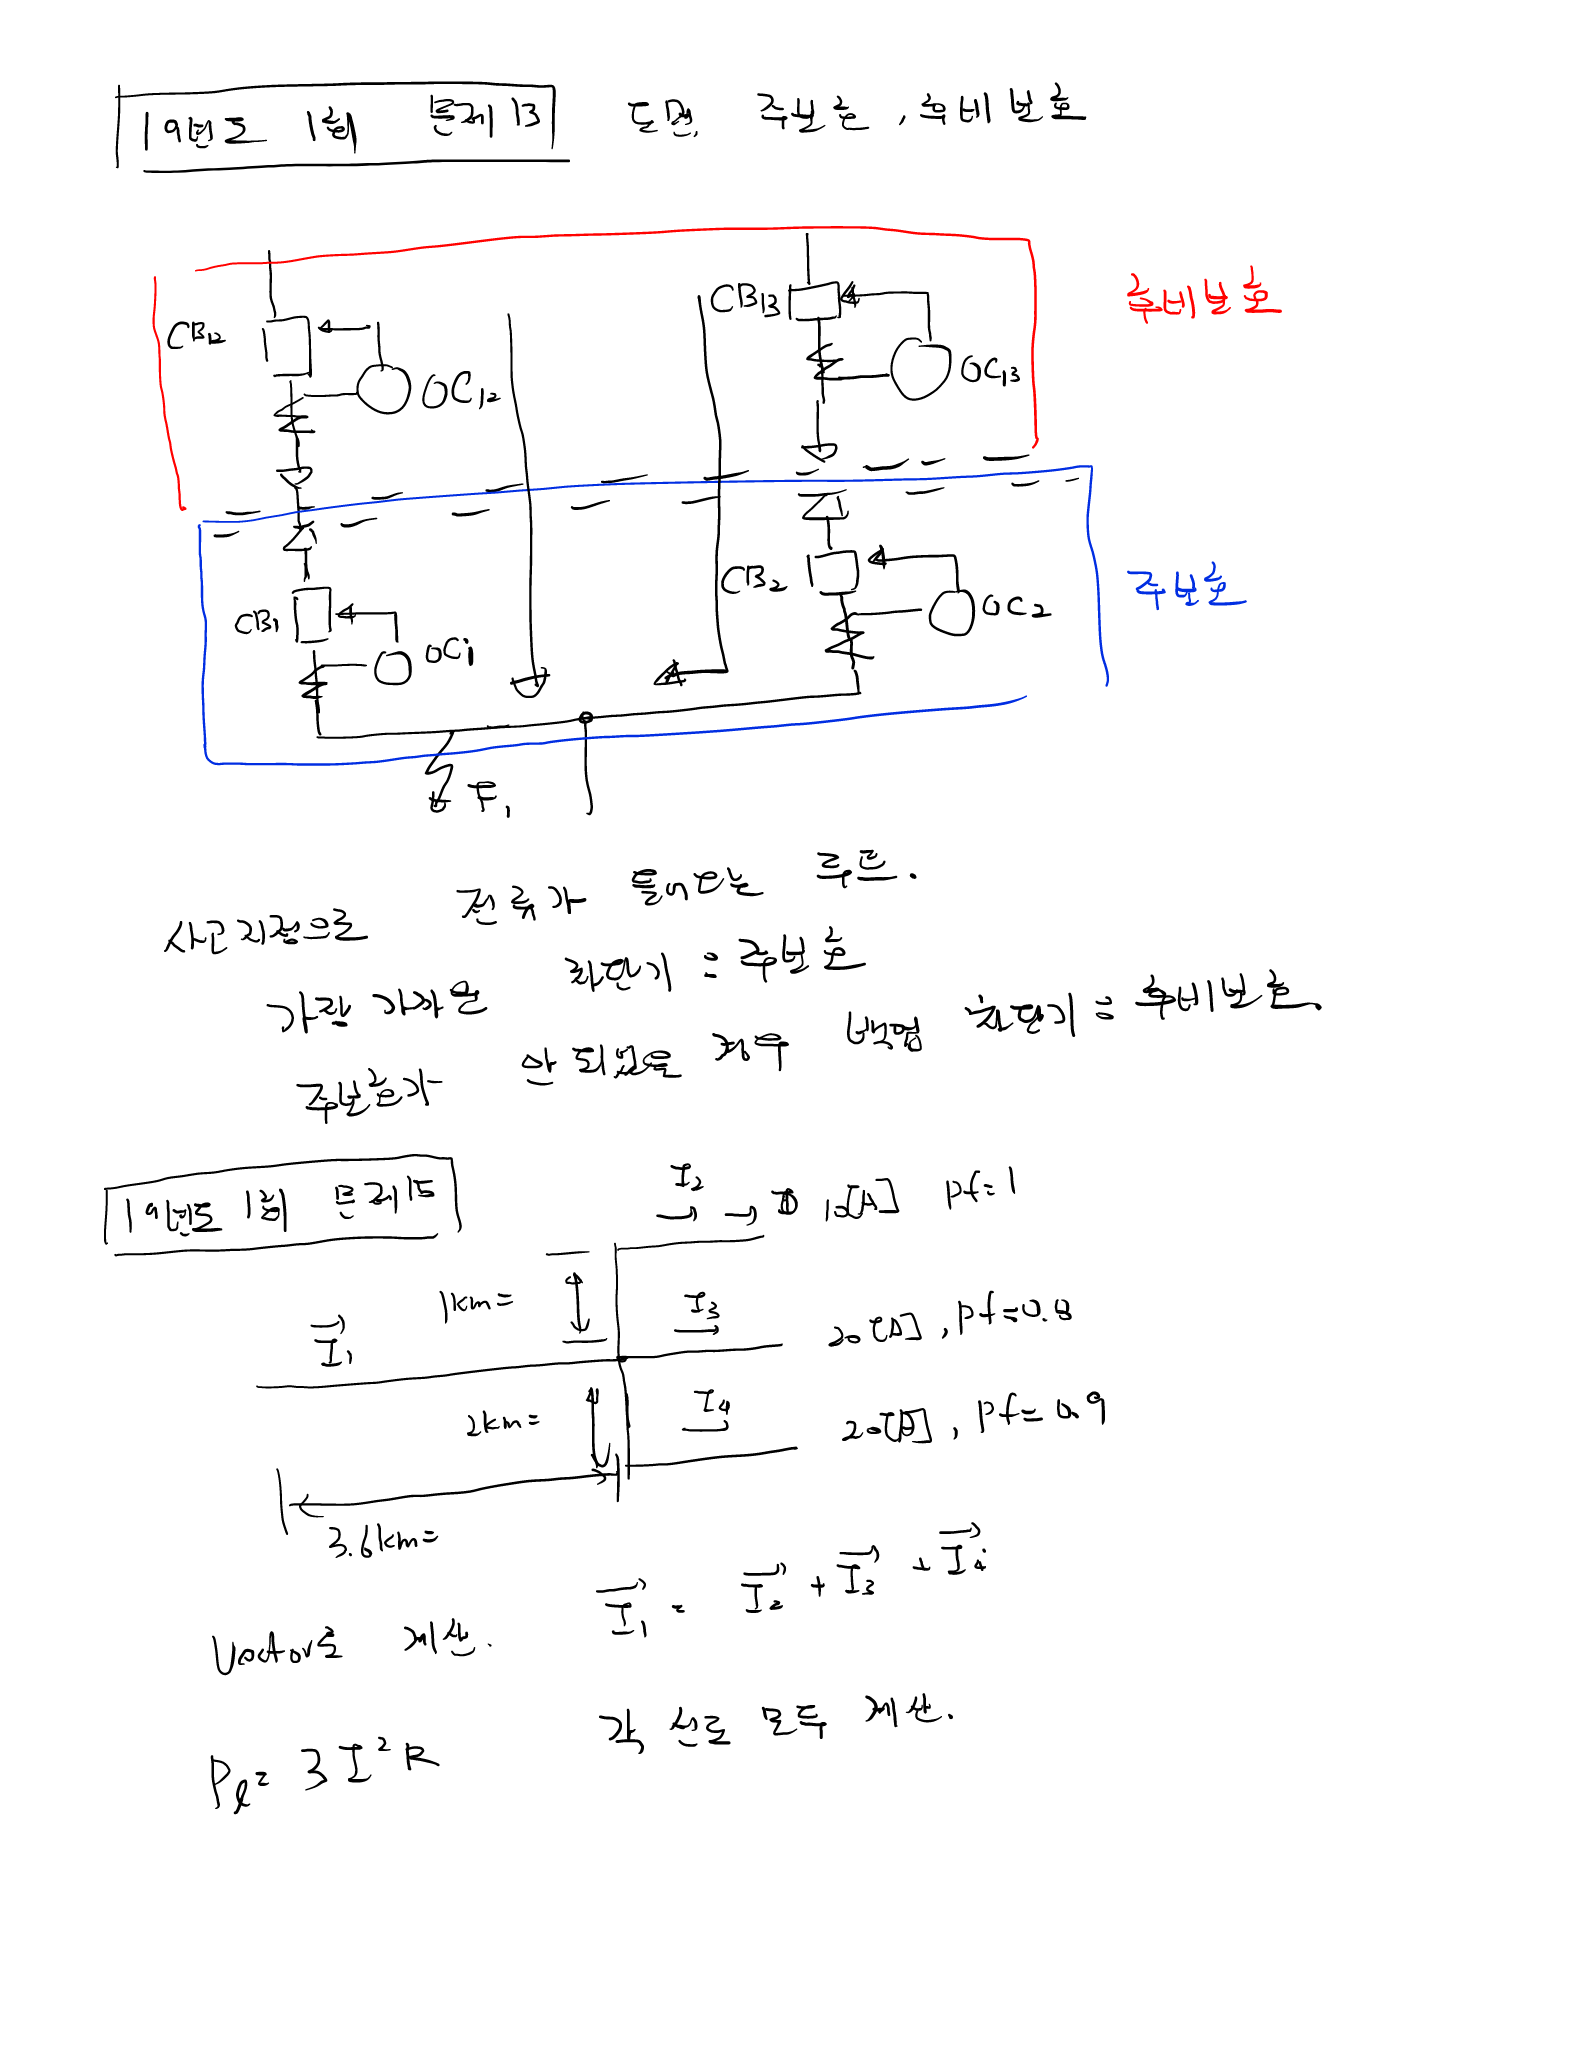 19년도 1회 문제 13 도면, 주보호, 후비보호
후비보호
CB12 OC12 CB13 OC13
주보호
CB1 OC1 CB2 OC2
F1
사고지점으로 전류가 들어오는 루트.
가장 가까운 차단기 : 주보호
주보호가 안 되었을 경우 백업 차단기 : 후비보호.
19년도 1회 문제 15
I2 10[A] pf=1
1km=
I1 I3 20[A], pf=0.8
2km= I4 20[A], pf=0.9
3.6km=
Vector로 계산. I1 = I2 + I3 + I4
Pl= 3I²R 각 선로 모두 계산.